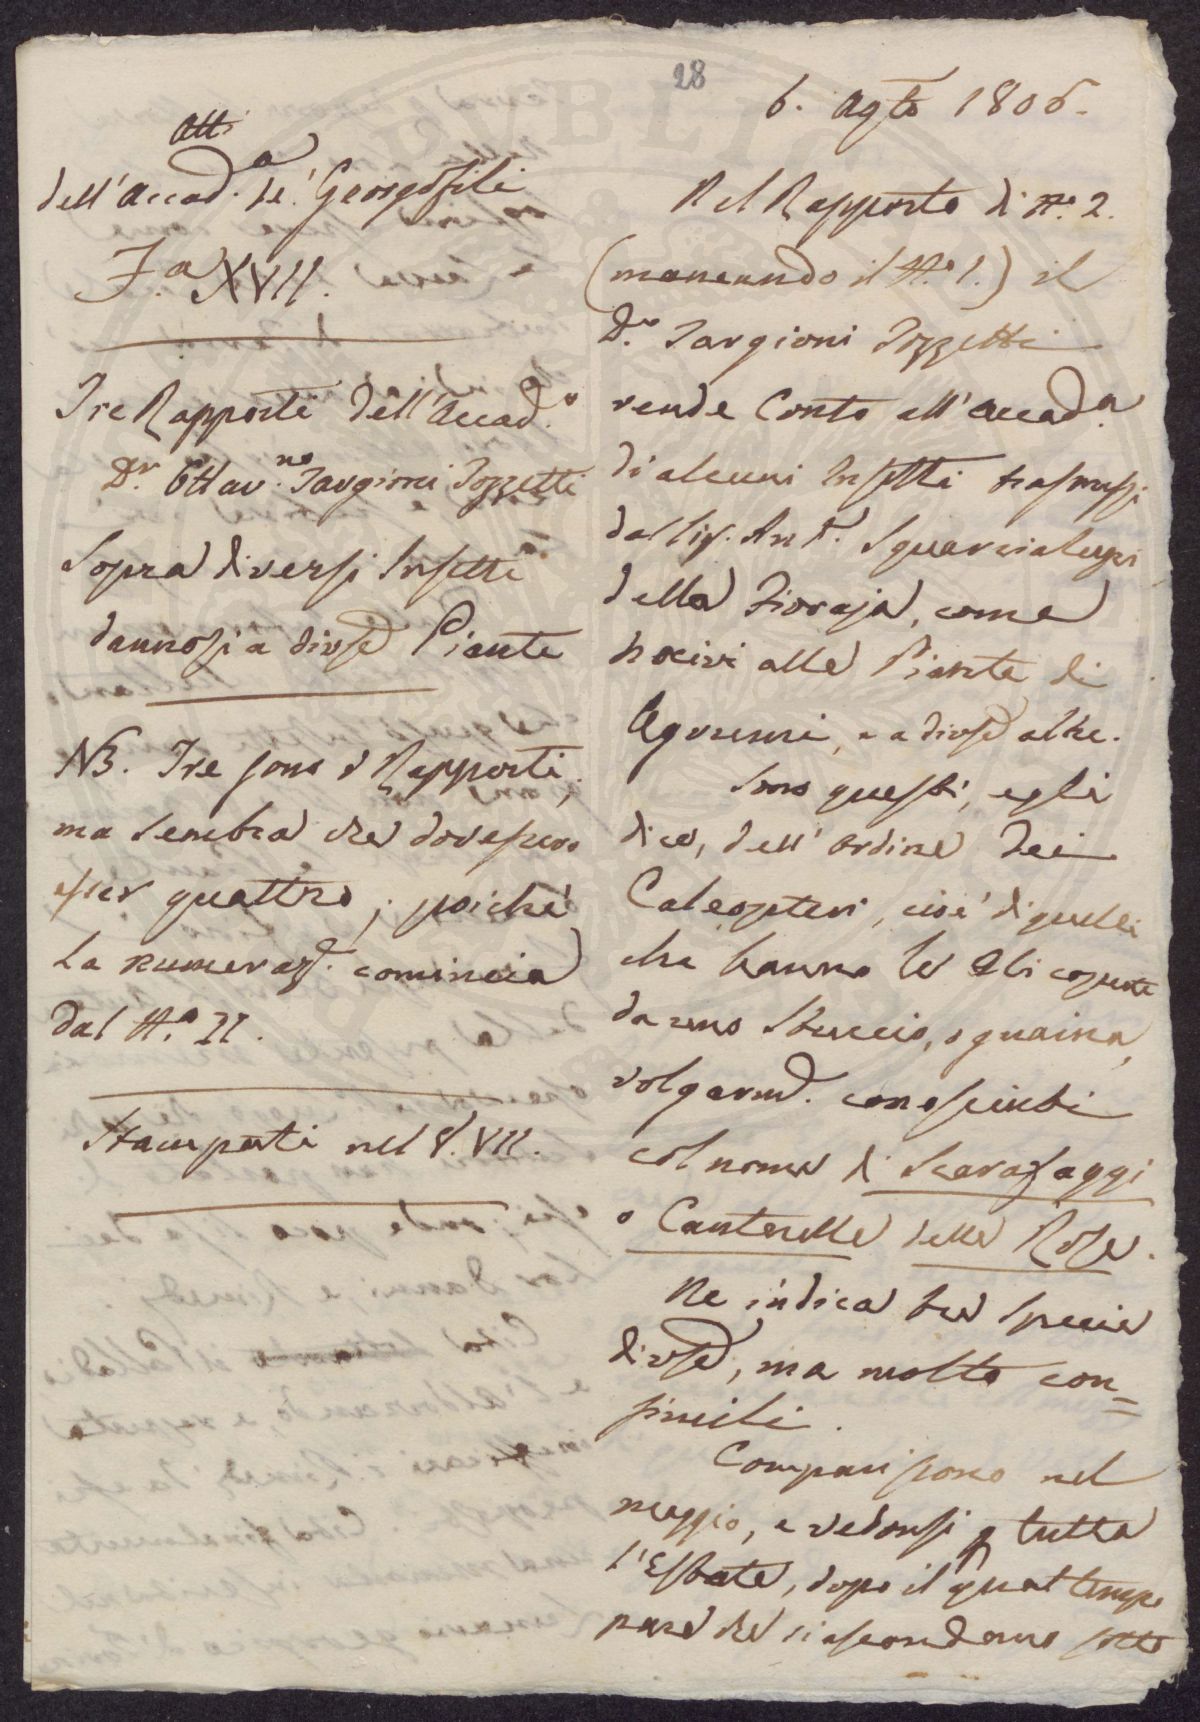 28
6. Agto 1806.
Atti
dell'Accad.a de' Georgofili
F.a XVII.
Tre Rapporti dell'Accad.o
Dr. Ottav.no Targioni Tozzetti
Sopra diversi Insetti
dannosi a divse Piante
NB. Tre sono i Rapporti,
ma sembra che dovessero
esser quattro; poichè
la numeraz. comincia
dal N.o II.
Stampati nel V. VII.
Nel Rapporto di N.o 2.
(mancando il N.o 1.) il
D.r Targioni Tozzetti
rende Conto all'Accad.a
di alcuni Insetti trasmessi
dal Sig. Ant. Squarcialupi
della Fioraja, come
nocivi alle Piante di
Agrumi, e a divse altre.
Sono questi, egli
dice, dell'ordine dei
Coleopteri, cioè di quelli
che hanno le Ali coperte
da uno Stuccio, o guaina,
volgarm. conosciuti
col nome di Scarafaggi
o Canterelle delle Rose.
Ne indica tre specie
divse, ma molto con=
simili.
Compariscono nel
maggio, e vedonsi p tutta
l'Estate, dopo il qual tempo
pare che si ascondano sotto